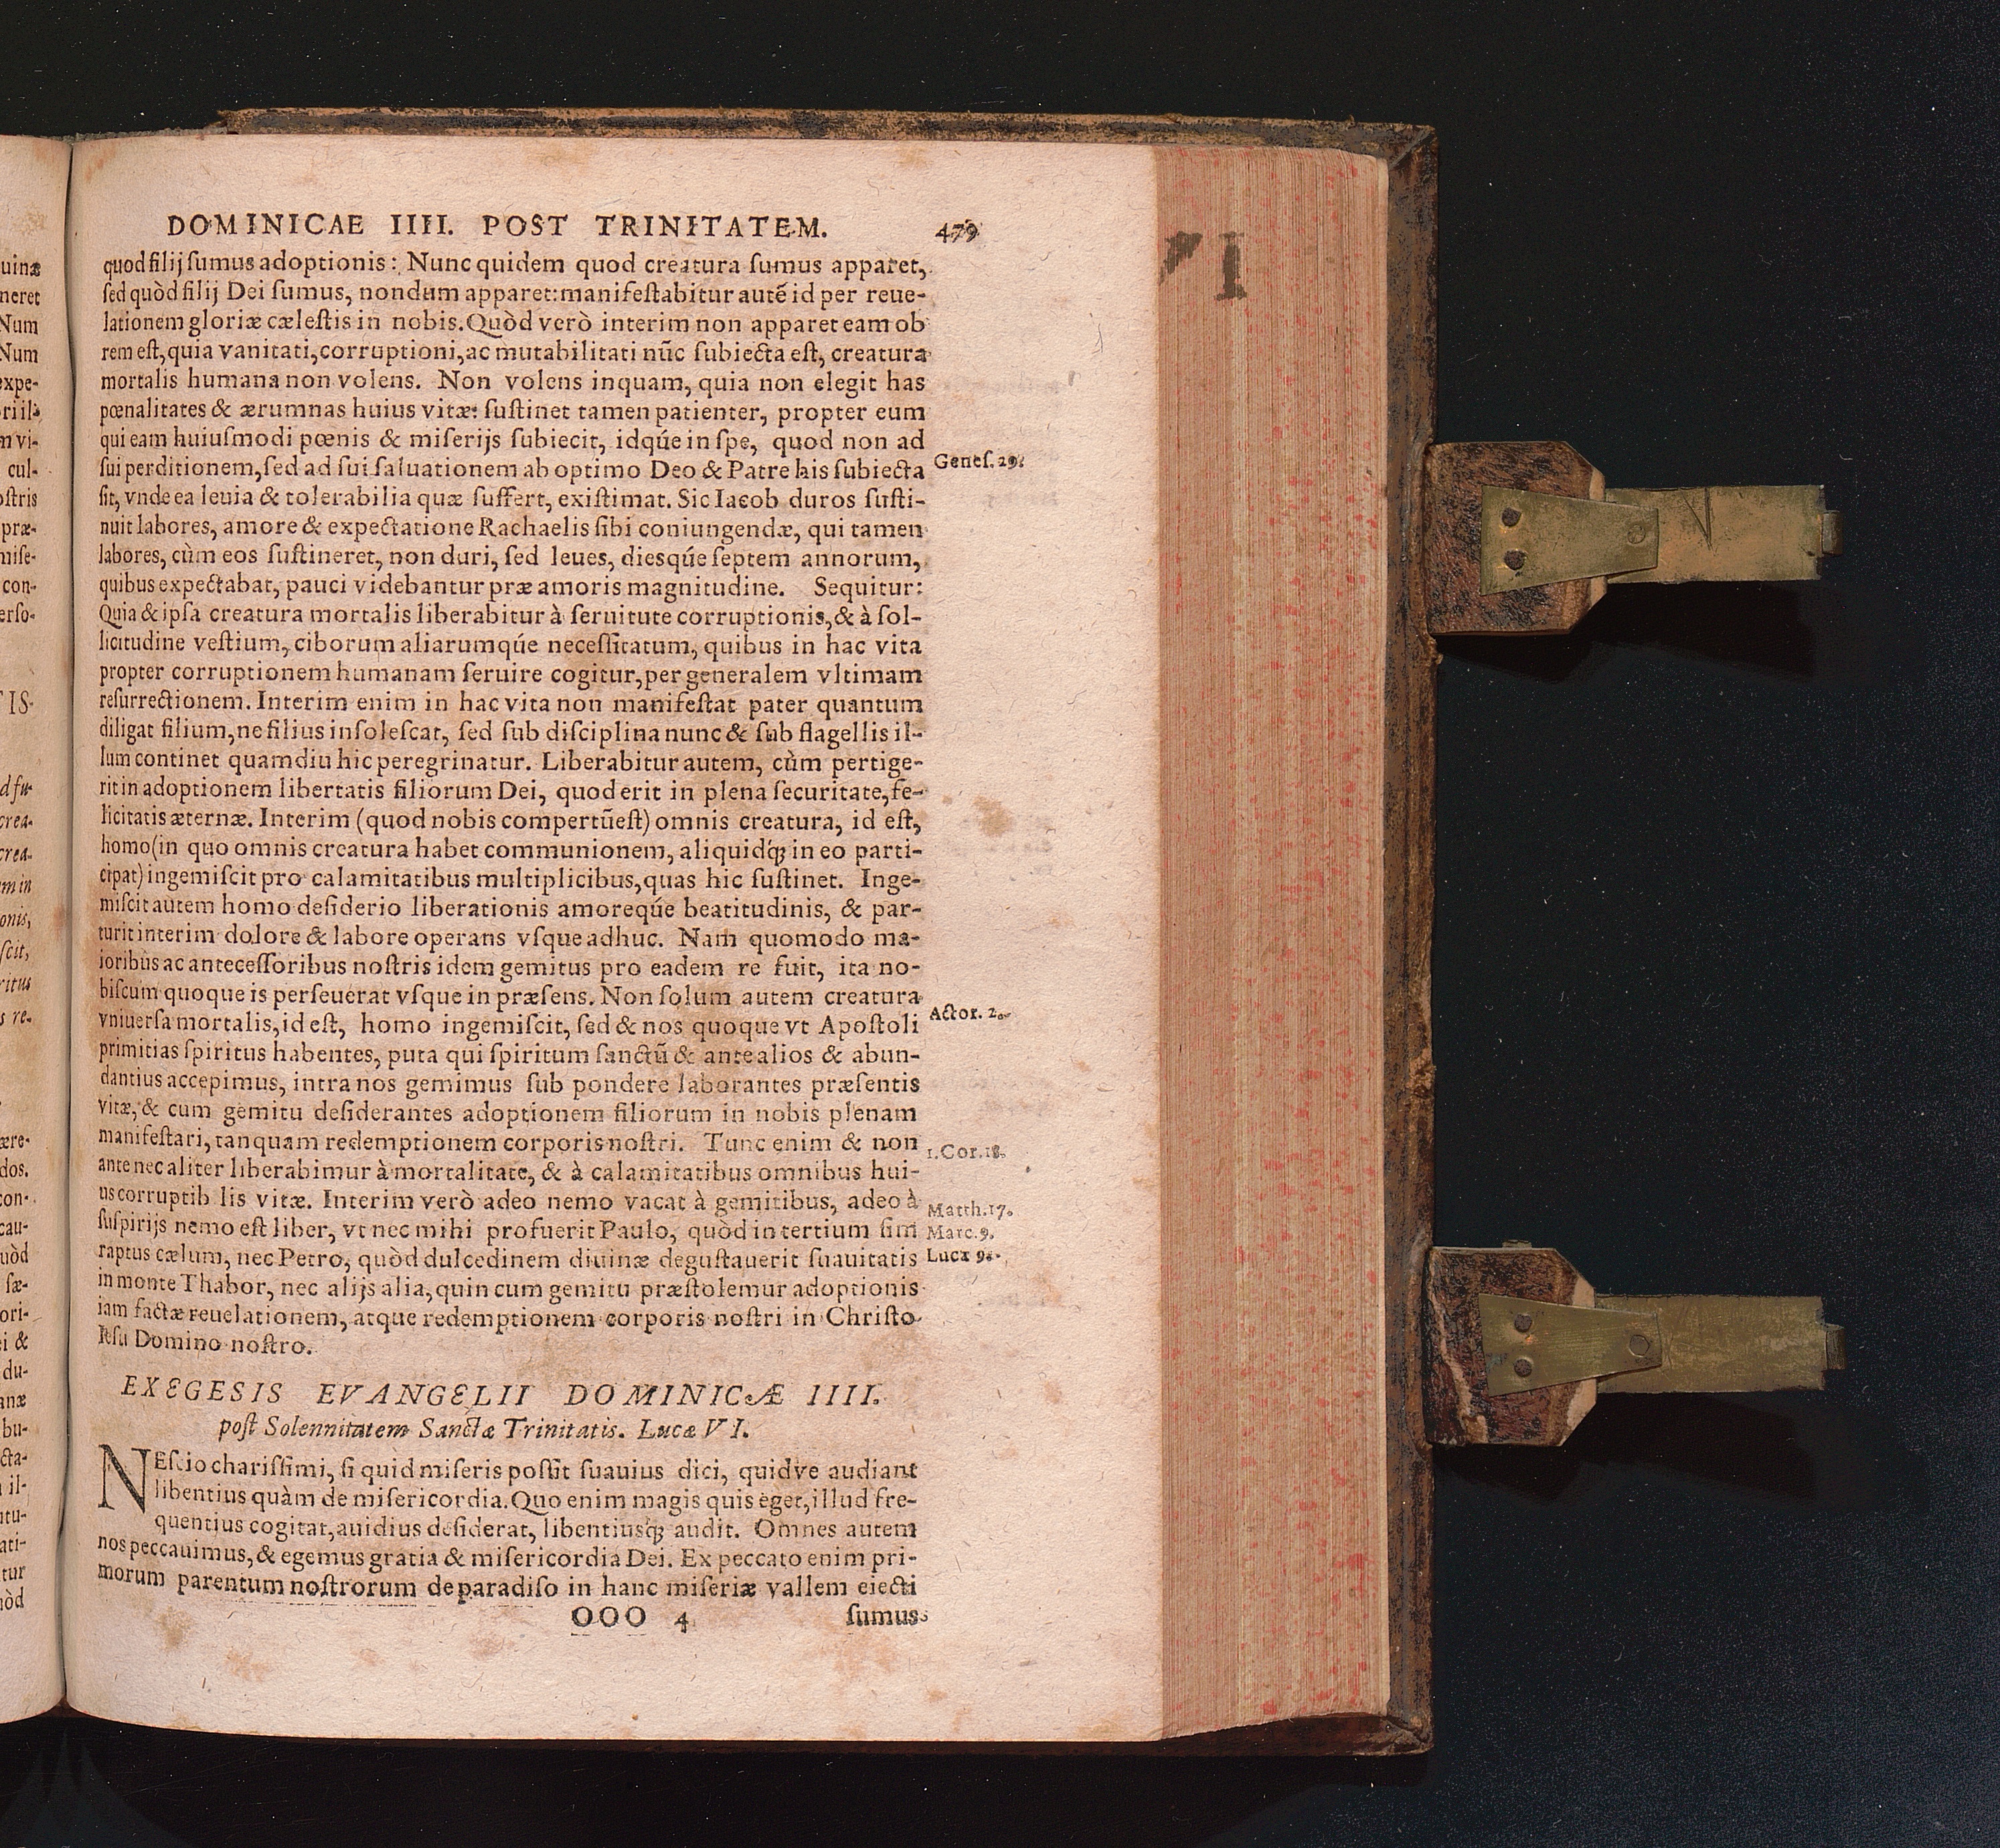 DOMINICAE IIII. POST TRINITATEM. 479
quod filij ſumus adoptionis: Nunc quidem quod creatura ſumus apparet,
ſed quòd filij Dei ſumus, nondum apparet: manifeſtabitur autē id per reue-
lationem gloriæ cæleſtis in nobis. Quòd verò interim non apparet eam ob
rem eſt, quia vanitati, corruptioni, ac mutabilitati nūc ſubiecta eſt, creatura
mortalis humana non volens. Non volens inquam, quia non elegit has
pœnalitates & ærumnas huius vitæ: ſuſtinet tamen patienter, propter eum
qui eam huiuſmodi pœnis & miſerijs ſubiecit, idqúe in ſpe, quod non ad
ſui perditionem, ſed ad ſui ſaluationem ab optimo Deo & Patre his ſubiecta
Geneſ. 29.
ſit, vnde ea leuia & tolerabilia quæ ſuffert, exiſtimat. Sic Iacob duros ſuſti-
nuit labores, amore & expectatione Rachaelis ſibi coniungendæ, qui tamen
labores, cùm eos ſuſtineret, non duri, ſed leues, diesqúe ſeptem annorum,
quibus expectabat, pauci videbantur præ amoris magnitudine. Sequitur:
Quia & ipſa creatura mortalis liberabitur à ſeruitute corruptionis, & à ſol-
licitudine veſtium, ciborum aliarumqúe neceſſitatum, quibus in hac vita
propter corruptionem humanam ſeruire cogitur, per generalem vltimam
reſurrectionem. Interim enim in hac vita non manifeſtat pater quantum
diligat filium, ne filius inſoleſcat, ſed ſub diſciplina nunc & ſub flagellis il-
lum continet quamdiu hic peregrinatur. Liberabitur autem, cùm pertige-
rit in adoptionem libertatis filiorum Dei, quod erit in plena ſecuritate, fe-
licitatis æternæ. Interim (quod nobis compertū eſt) omnis creatura, id eſt,
homo (in quo omnis creatura habet communionem, aliquidq́; in eo parti-
cipat) ingemiſcit pro calamitatibus multiplicibus, quas hic ſuſtinet. Inge-
miſcit autem homo deſiderio liberationis amoreqúe beatitudinis, & par-
turit interim dolore & labore operans vſque adhuc. Nam quomodo ma-
ioribus ac anteceſſoribus noſtris idem gemitus pro eadem re fuit, ita no-
biſcum quoque is perſeuerat vſque in præſens. Non ſolum autem creatura
vniuerſa mortalis, id eſt, homo ingemiſcit, ſed & nos quoque vt Apoſtoli
Actor. 2.
primitias ſpiritus habentes, puta qui ſpiritum ſanctū & ante alios & abun-
dantius accepimus, intra nos gemimus ſub pondere laborantes præſentis
vitæ, & cum gemitu deſiderantes adoptionem filiorum in nobis plenam
manifeſtari, tanquam redemptionem corporis noſtri. Tunc enim & non
ante nec aliter liberabimur à mortalitate, & à calamitatibus omnibus hui-
1. Cor. 18.
us corruptib lis vitæ. Interim verò adeo nemo vacat à gemitibus, adeo à
ſuſpirijs nemo eſt liber, vt nec mihi profuerit Paulo, quòd in tertium ſim
Matth. 17.
Marc. 9.
raptus cælum, nec Petro, quòd dulcedinem diuinæ deguſtauerit ſuauitatis
Lucæ 9.
in monte Thabor, nec alijs alia, quin cum gemitu præſtolemur adoptionis
iam factæ reuelationem, atque redemptionem corporis noſtri in Chriſto
Ieſu Domino noſtro.
EXEGESIS EVANGELII DOMINICÆ IIII.
poſt Solennitatem Sanctæ Trinitatis. Lucæ VI.
NEſcio chariſſimi, ſi quid miſeris poſſit ſuauius dici, quidve audiant
libentius quàm de miſericordia. Quo enim magis quis eget, illud fre-
quentius cogitat, auidius deſiderat, libentiusq́; audit. Omnes autem
nos peccauimus, & egemus gratia & miſericordia Dei. Ex peccato enim pri-
morum parentum noſtrorum de paradiſo in hanc miſeriæ vallem eiecti
OOO 4 ſumus